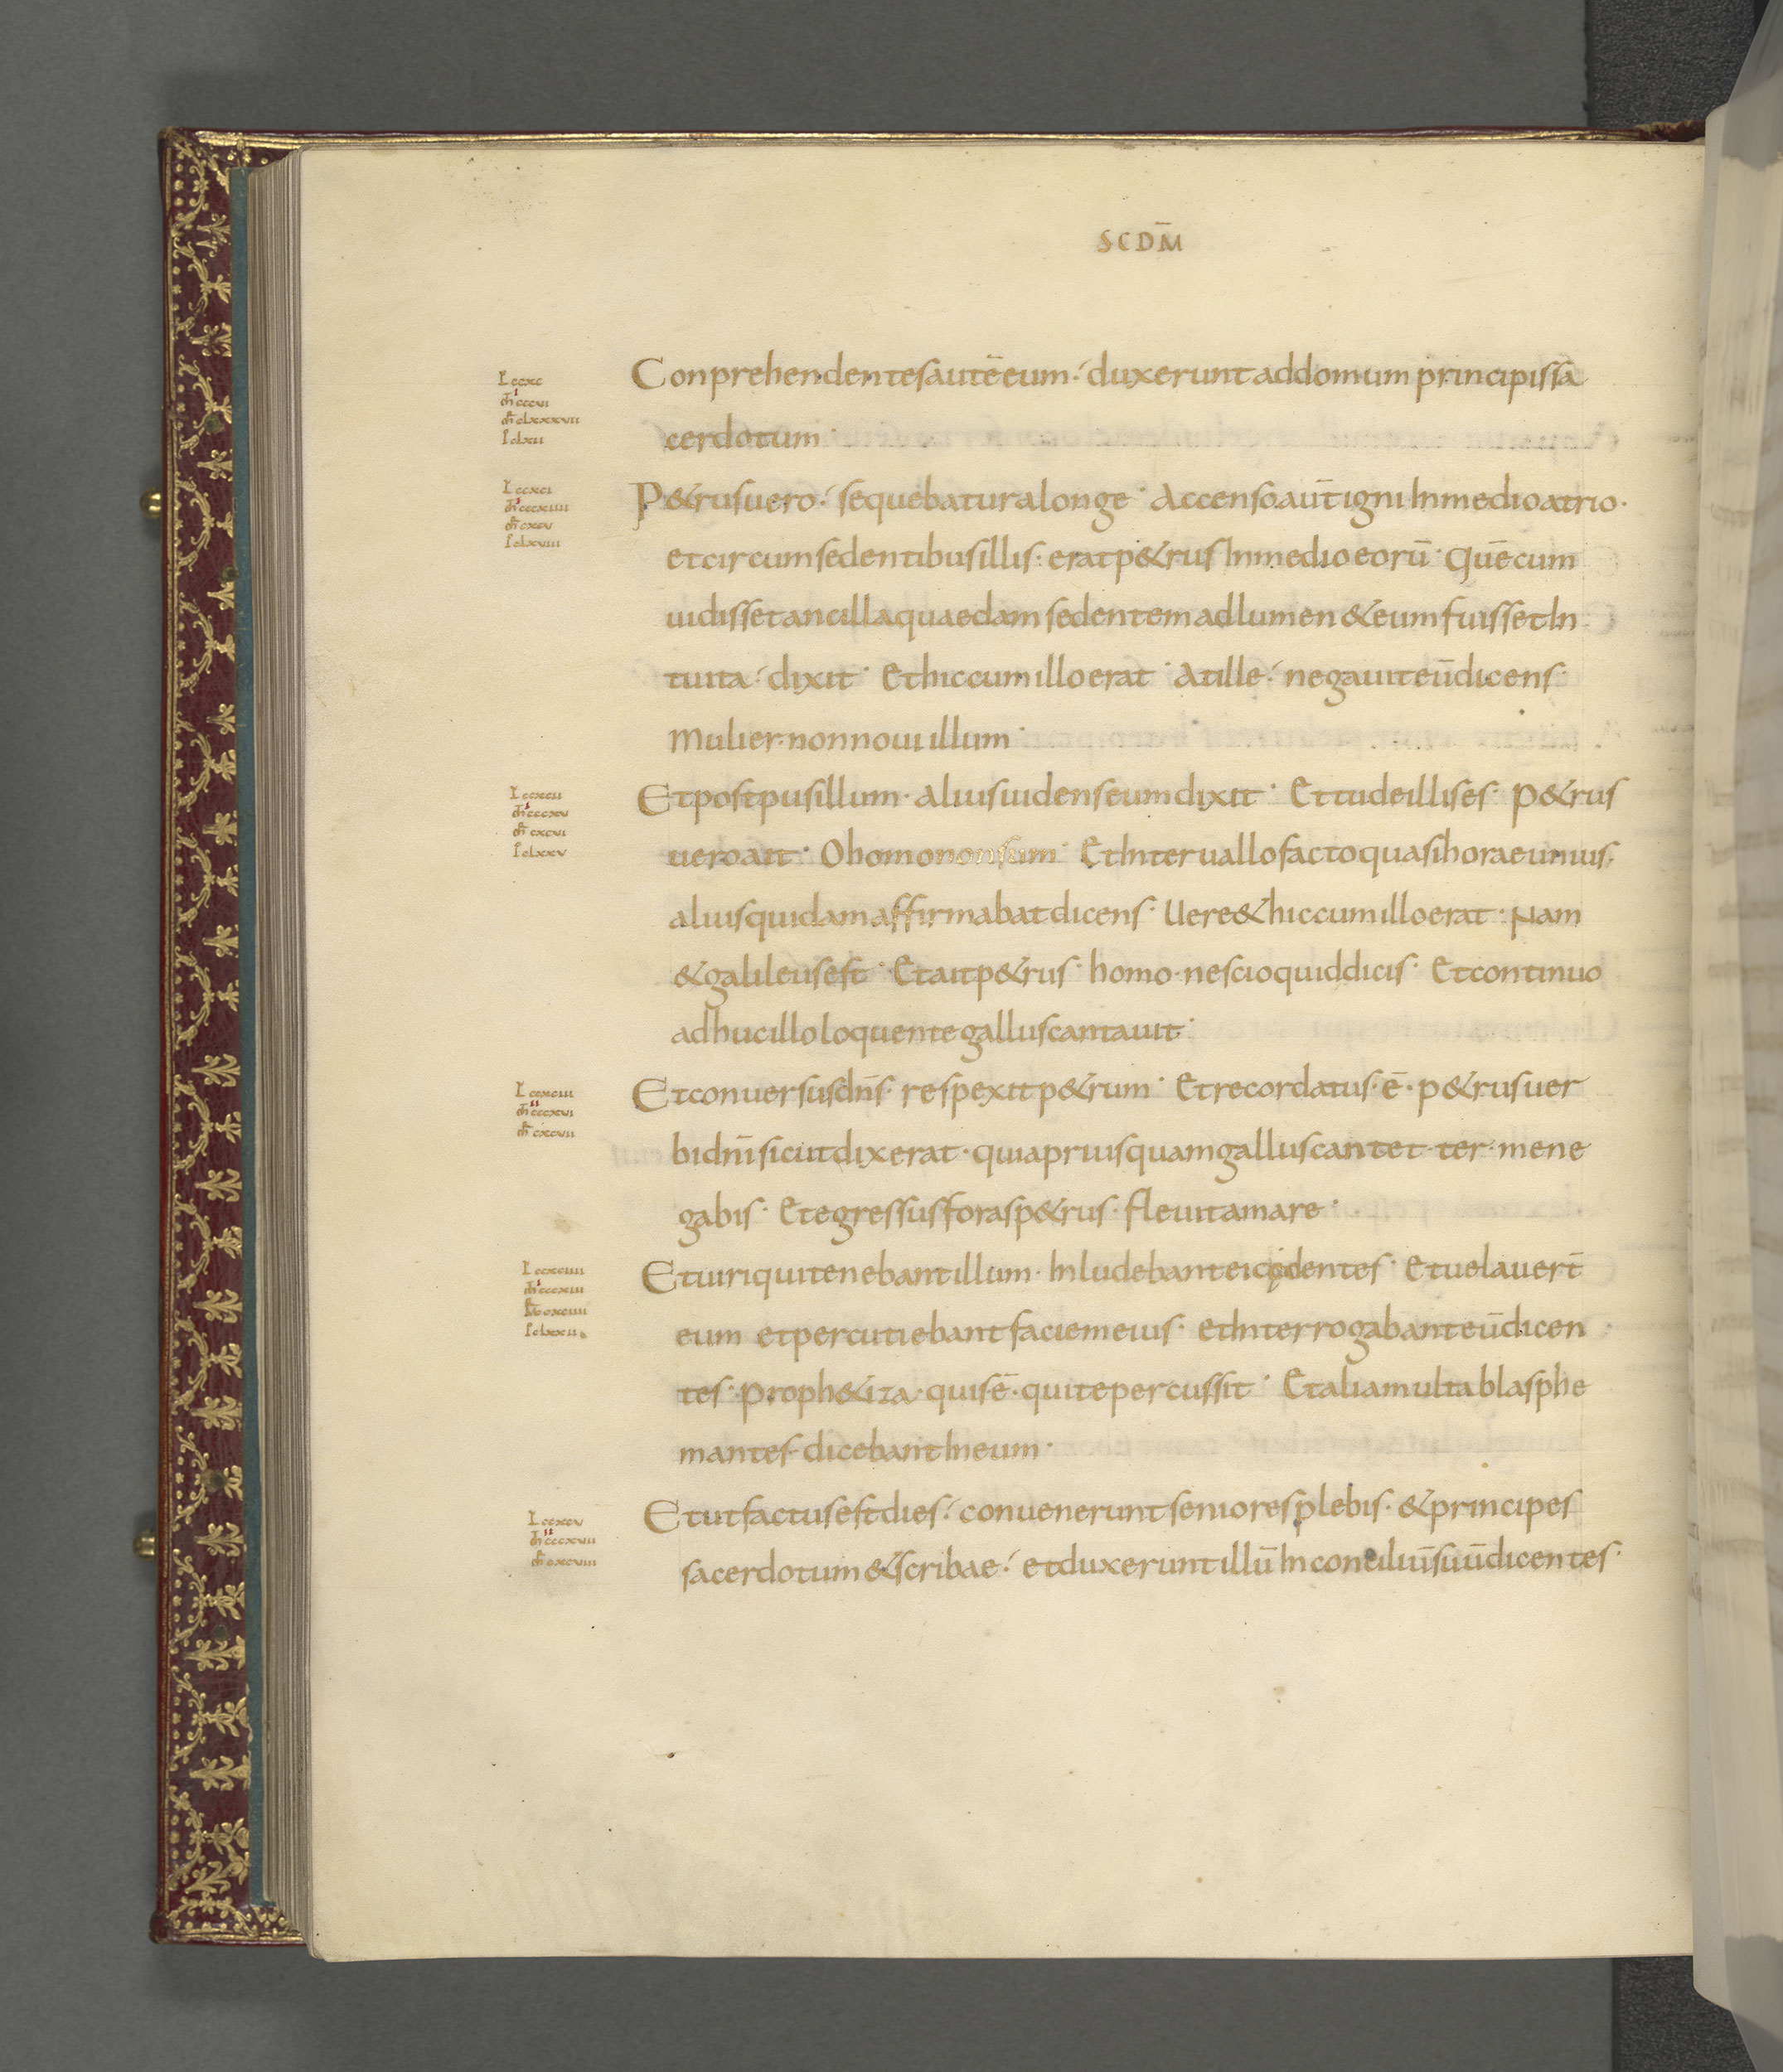 SCDM̅
Conprehendentes autē eum· duxerunt ad domum principis sa
cerdotum·
P&rus uero· sequebatur a longe· Accenso aut̄ igni In medio atrio·
et circumsedentibus illis· erat p&rus In medio eorū· Quē cum
uidisset ancilla quaedam sedentem ad lumen & eum fuisset In
tuita· dixit· Et hic cum illo erat· At ille· negauit eū dicens·
Mulier· non noui illum·
Et post pusillum· alius uidens eum dixit· Et tu de illis es· P&rus
uero ait· O homo non sum· Et Interuallo facto quasi horae unius·
alius quidam affirmabat dicens· Uere & hic cum illo erat· Nam
& galileus est· Et ait p&rus· homo· nescio quid dicis· Et continuo
adhuc illo loquente gallus cantauit·
Et conuersus dn̄s· respexit p&rum· Et recordatus· ē· p&rus uer
bi dn̄i sicut dixerat· quia prius quam gallus cantet· ter· me ne
gabis· Et egressus foras p&rus· fleuit amare·
Et uiri qui tenebant illum· Inludebant ei cędentes· Et uelauer̄t
eum et percutiebant faciem eius· et Interrogabant eū dicen
tes· Proph&iza· quis ē· qui te percussit· Et alia multa blasphe
mantes· dicebant In eum·
Et ut factus est dies· conuenerunt seniores plebis· & principes
sacerdotum & scribae· et duxerunt illū In conciliū suū dicentes·